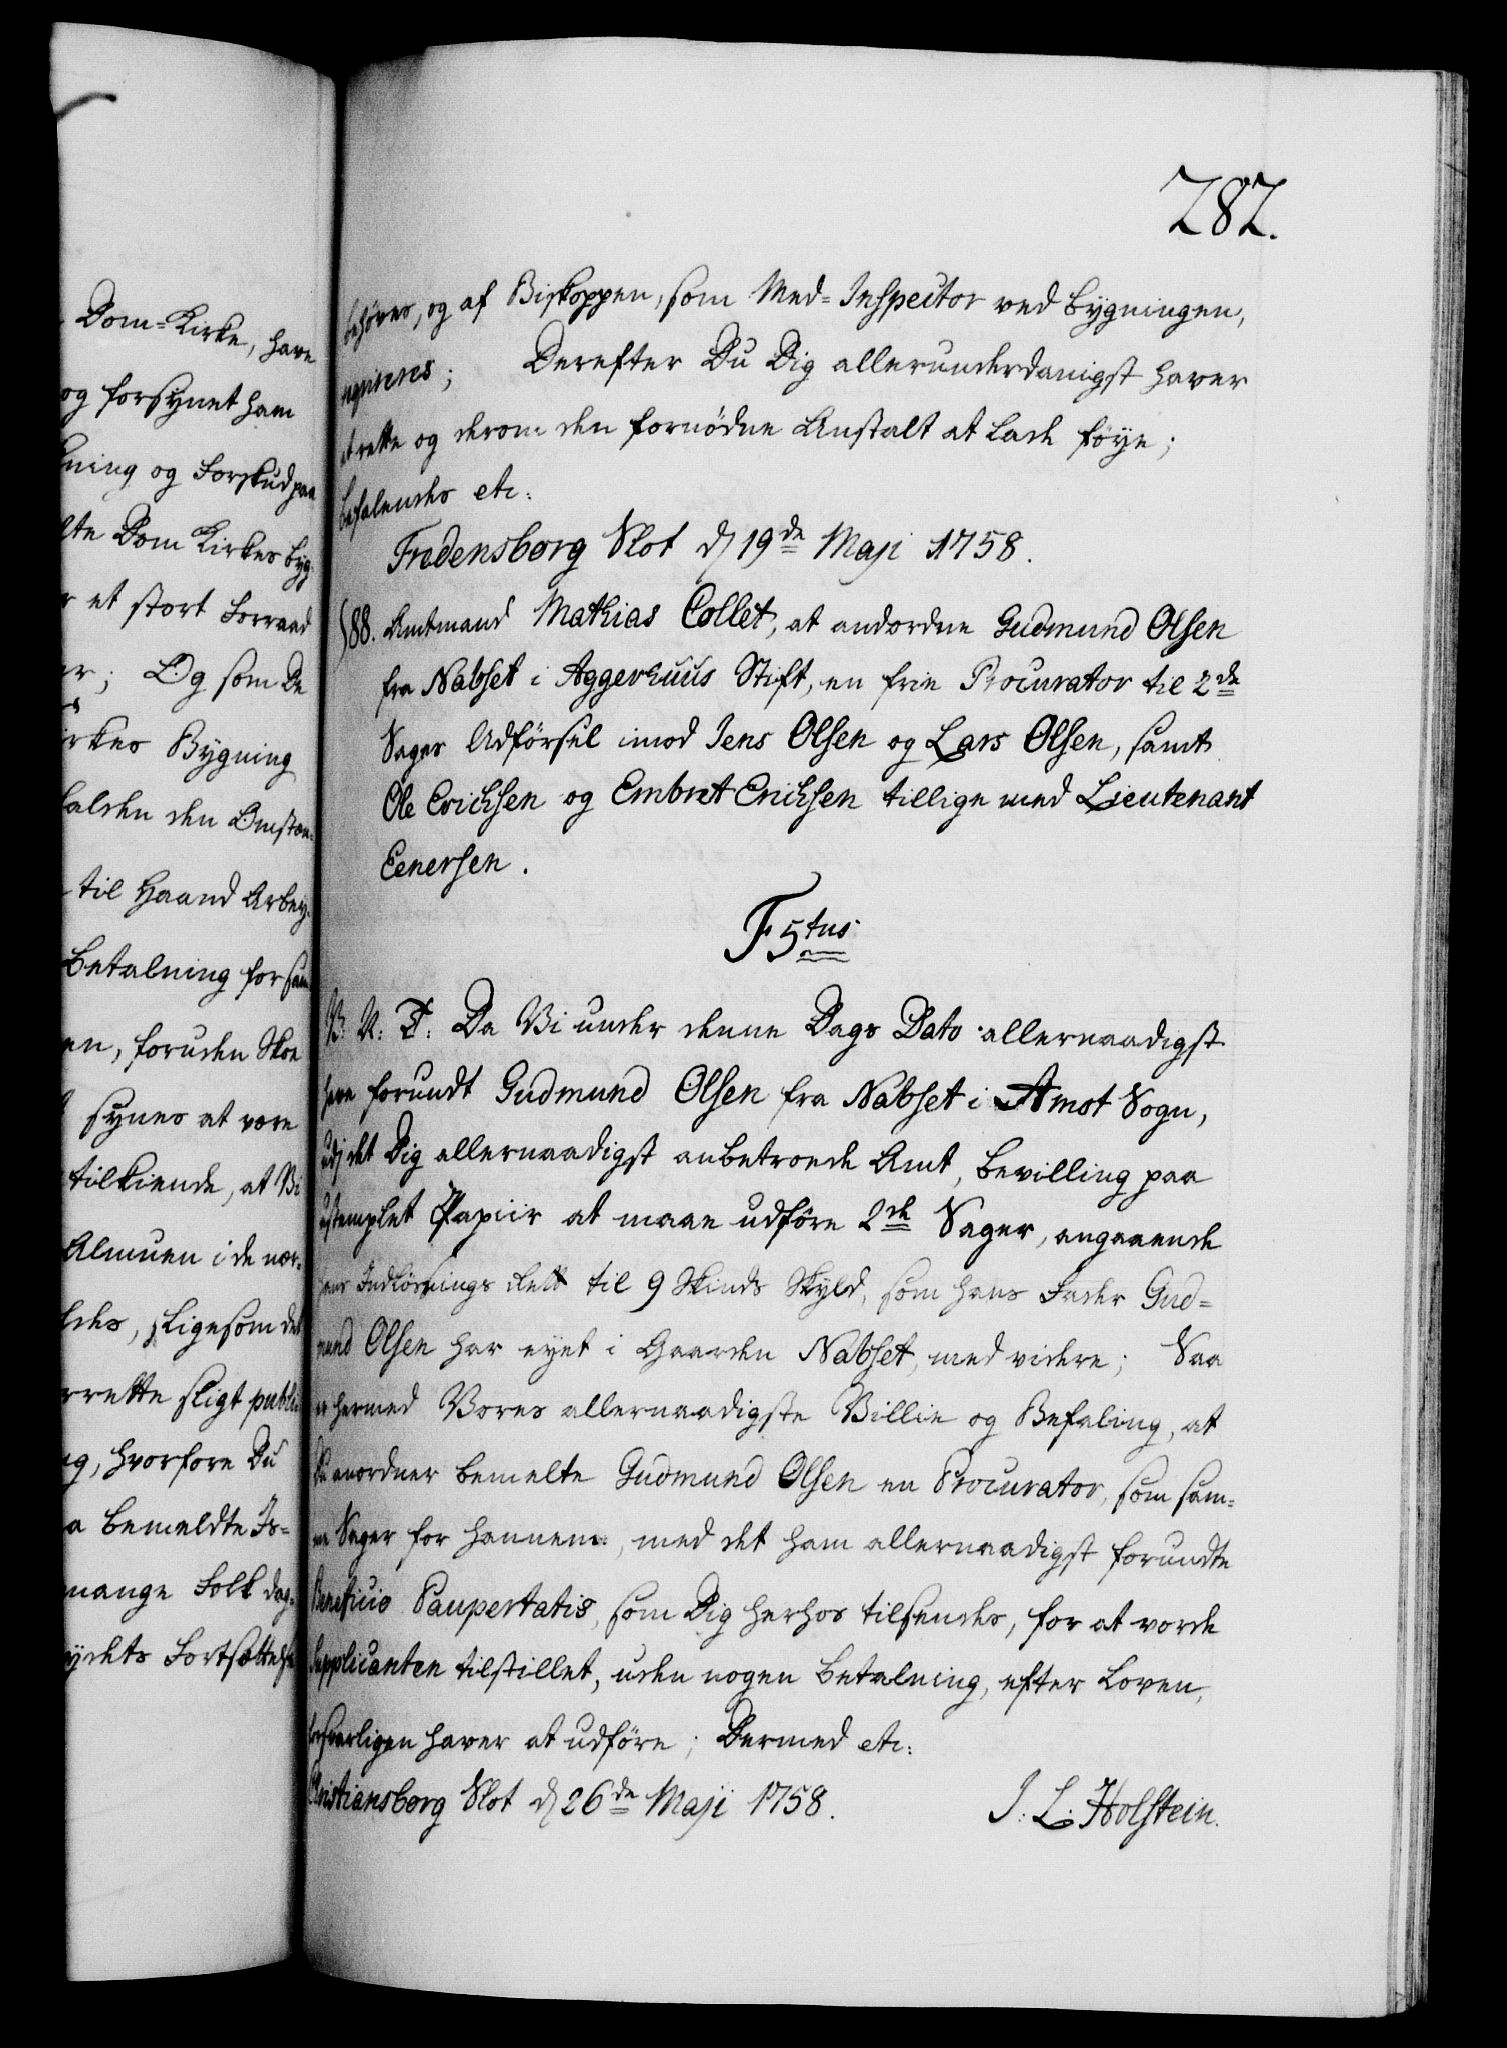 282.
Dom-Kirke, have
og forsÿnet ham
ning og Forskud paa
Dom Kirkes Byg-
et stort Forraad
Og som De
Bÿgning
den Omstæn-
til Haand Arbey-
Betalning for
foruden
sÿnes at være
tilkiende, at Vi
Almuen i de nær-
ligesom det
sligt publi
hvorfore Du
bemeldte Is-
mange Folk dag-
Fortsættelse
behøves, og af Biskoppen, som Med-Inspector ved Bygningen,
reqvireres; Derefter Du Dig allerunderdanigst haver
at rette og derom den fornødne Anstalt at lade føÿe;
Befalendes etc:
Fredensborg Slot d 19de Maji 1758.
588. Amtmand Mathias Collet, at andordne Gudmund Olsen
fra Nabset i Aggerhuus Stift, en frie Procurator til 2de
Sagers Udførsel imod Jens Olsen og Lars Olsen, samt
Ole Erichsen og Embret Erichsen tillige med Lieutenant
Eenersen.
F 5tus
V: V: T: Da Vi under denne Dags Dato allernaadigst
have forundt Gudmund Olsen fra Nabset i Amot Sogn,
udj det Dig allernaadigst anbetroede Amt, Bevilling paa
ustemplet Papiir at maae udføre 2de Sager, angaaende
hans Indløsnings Rett til 9 Skinds Skÿld, som hans Fader Gud-
mund Olsen har eÿet i Gaarden Nabset, med videre; Saa
er hermed Vores allernaadigste Villie og Befaling, at
Du anordner bemelte Gudmund Olsen en Procurator, som sam-
me Sager for hannem, med det ham allernaadigst forundte
Beneficio Paupertatis, som Dig herhos tilsendes, for at vorde
Supplicanten tilstillet, uden nogen Betalning, efter Loven,
forsvarligen haver at udføre; Dermed etc:
Christiansborg Slot d 26de Maji 1758.
J: L: Holstein.